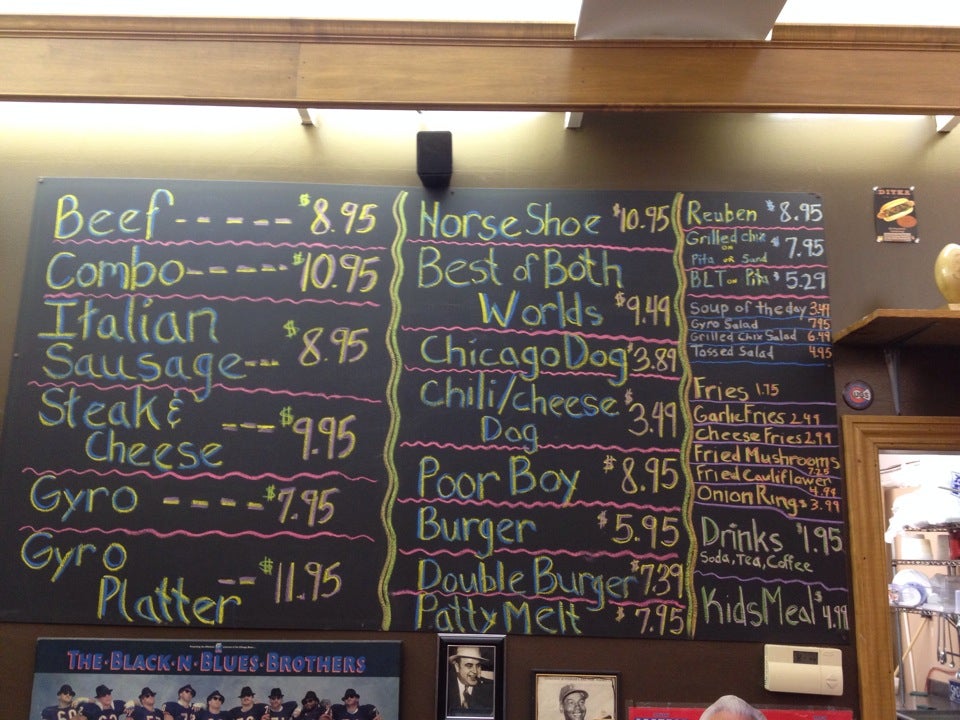 Beef - - - - - $8.95
Combo - - - - - $10.95
Italian
Sausage - - - $8.95
Steak &
Cheese - - - $9.95
Gyro - - - - $7.95
Gyro
Platter - - $11.95
Norse Shoe $10.95
Best of Both
Worlds $9.49
Chicago Dog $3.89
Chili/cheese
Dog $3.49
Poor Boy $8.95
Burger $5.95
Double Burger $7.39
Patty Melt $7.95
Reuben $8.95
Grilled Chix
on
Pita or Sand $7.95
BLT on Pita $5.29
Soup of the day 3.49
Gyro Salad 7.95
Grilled Chix Salad 6.99
Tossed Salad 4.95
Fries 1.75
Garlic Fries 2.49
Cheese Fries 2.99
Fried Mushrooms
Fried Cauliflower
4.99
Onion Rings 3.99
Drinks $1.95
Soda, Tea, Coffee
Kids Meal $4.99
DITKA
THE·BLACK·N·BLUES·BROTHERS